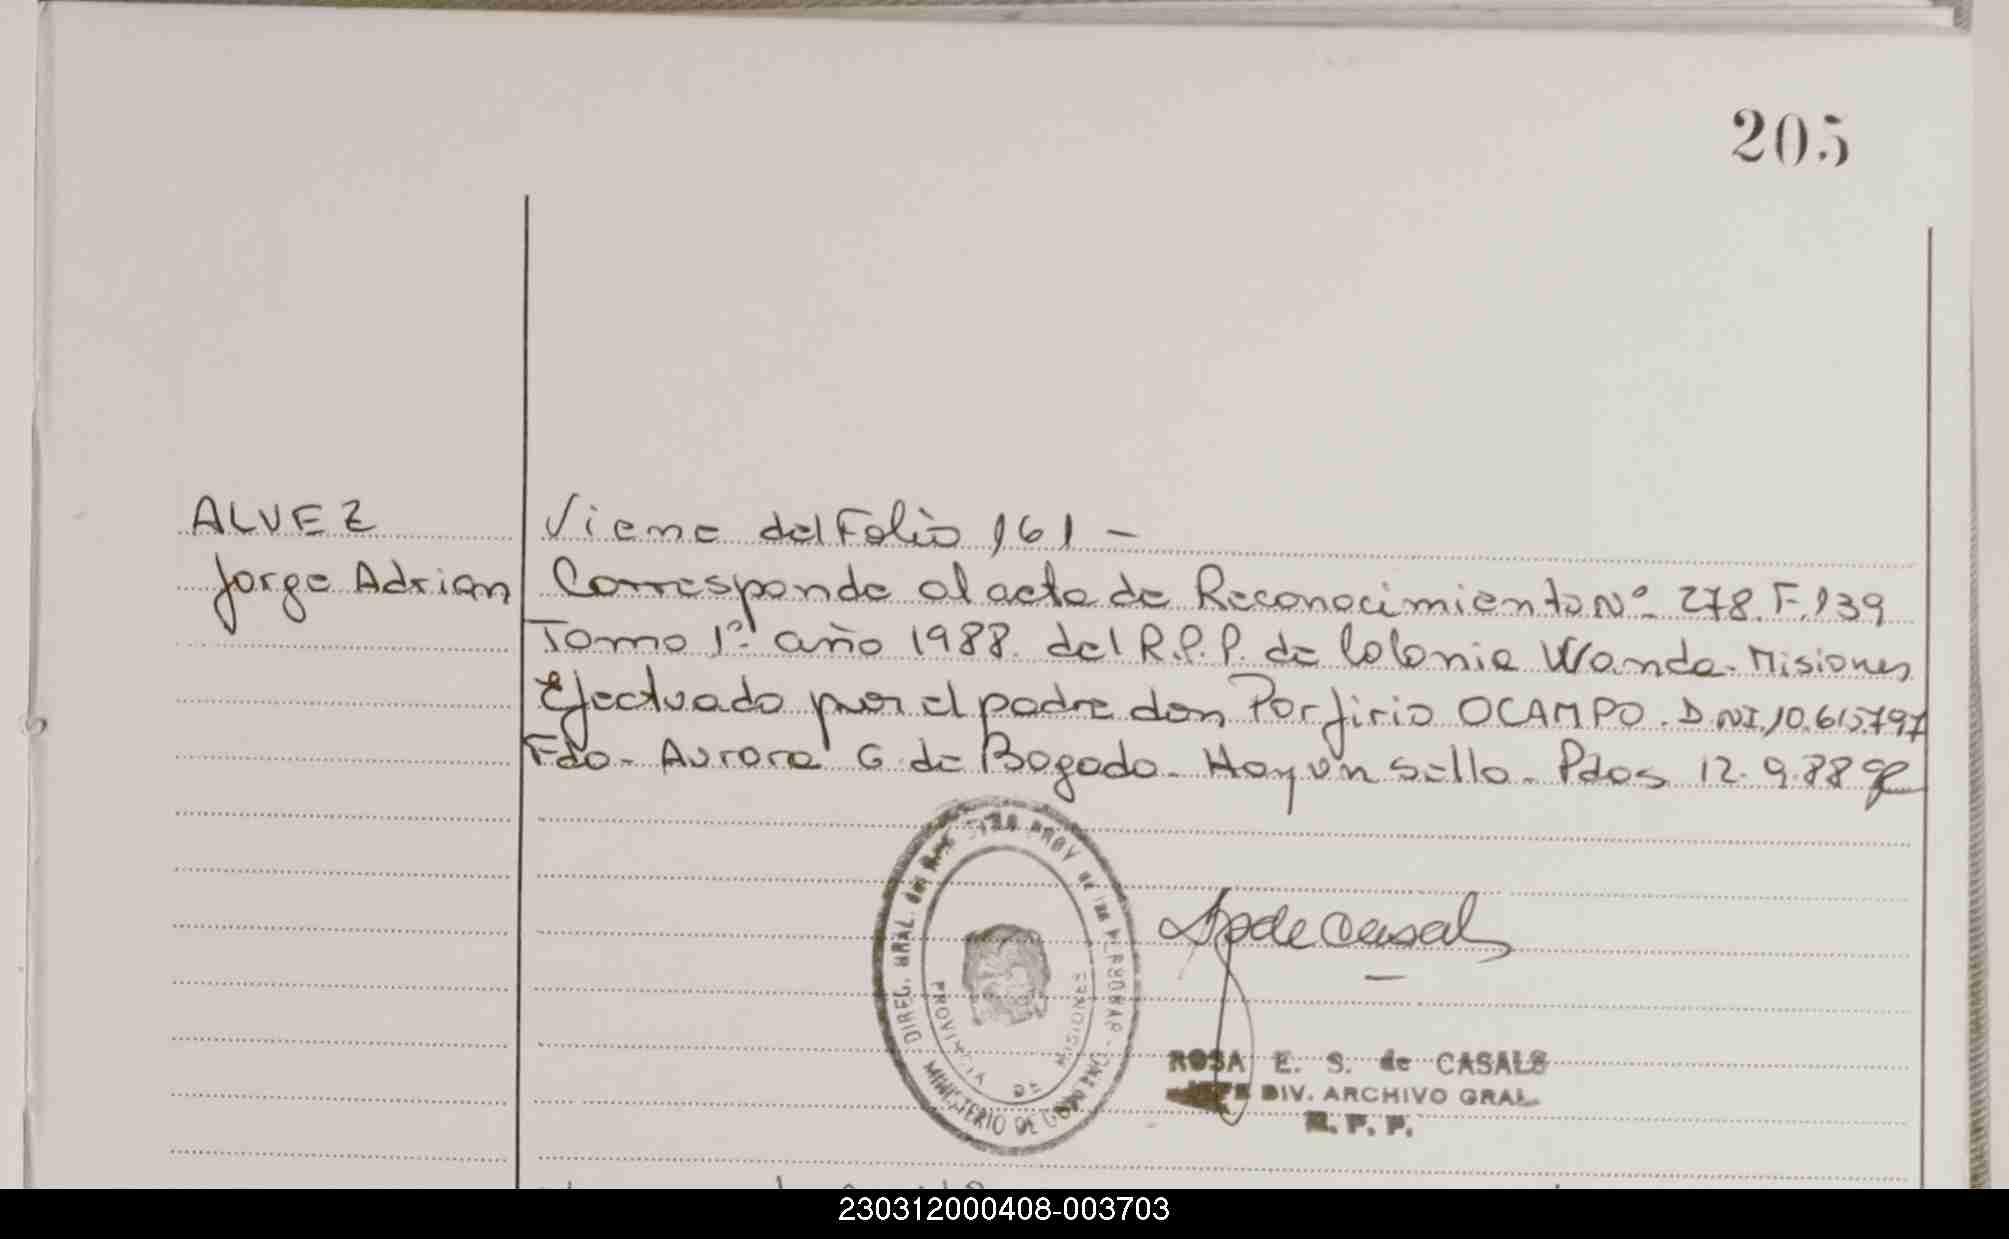 205
ALVEZ
Jorge Adrian
Viene del Folio 161 -
Corresponde al acta de Reconocimiento Nº 278. F. 139
Tomo 1º año 1988. del R.P.P. de Colonia Wanda. Misiones
Efectuado por el padre don Porfirio OCAMPO. D.NI. 10.615.797
Fdo. Aurora G. de Bogado. Hay un sello. Pdas 12.9.88
DIREC. GRAL. del REG PROV de las PERSONAS
MINISTERIO DE GOBIERNO
PROVINCIA DE MISIONES
de Casals
ROSA E. S. de CASALS
JEFE DIV. ARCHIVO GRAL.
R. P. P.
230312000408-003703